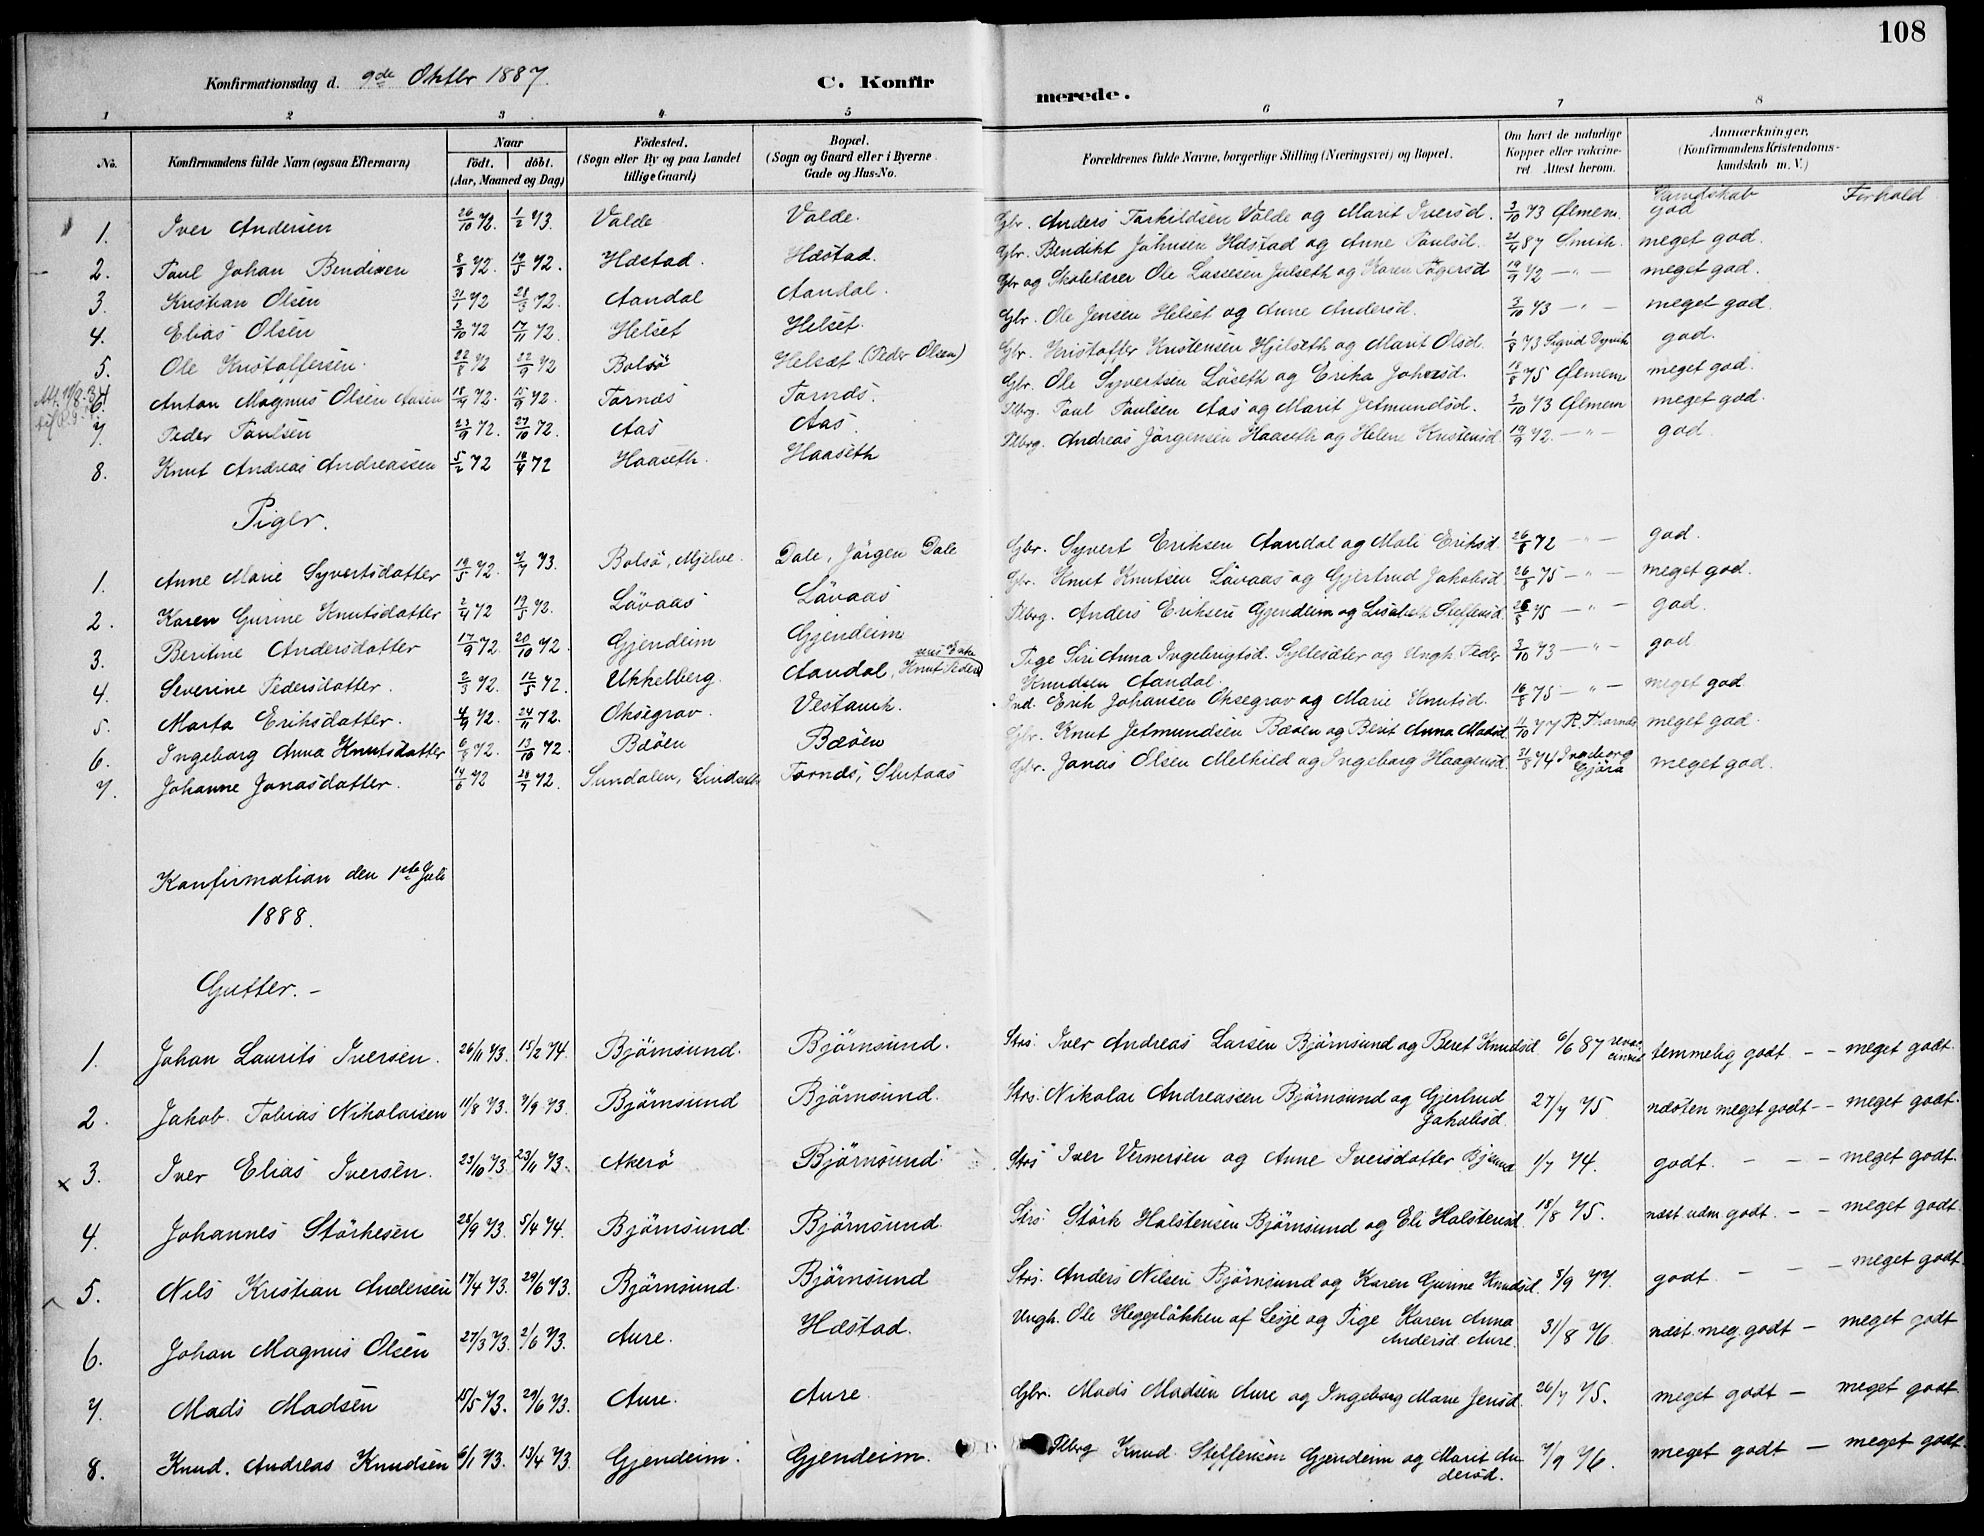 108
Konfirmationsdag d. 9de Oktbr 1887.
C. Konfirmerede.
1 2 3 4 5 6 7 8
No. Konfirmandens fulde Navn (ogsaa Efternavn) Naar födt. döbt. (Aar, Maaned og Dag) Födested. (Sogn eller By og paa Landet tillige Gaard) Bopæl. (Sogn og Gaard eller i Byerne Gade og Hus-No. Forældrenes fulde Navne, borgerlige Stilling (Næringsvei) og Bopæl. Om havt de naturlige Kopper eller vakcineret Attest herom. Anmærkninger, (Konfirmandens Kristendomskundskab m. V.)
Kundskab Forhold
1. Iver Andersen 26/10 72. 1/2 73. Valde Valde. Gbr. Anders Tarkildsen Valde og Marit Iversd. 3/10 73 Ølmem. god
2. Paul Johan Bendixen 8/3 72. 19/5 72. Hæstad. Hæstad. Gbr. Bendikt Johnsen Hæstad og Anne Paulsd. 21/4 87 Smith. meget god.
3. Kristian Olsen 31/1 72 28/3 72. Aandal Aandal. Gbr og Skolelærer Ole Lassesen Julseth og Karen Aagersd 19/9 72 — " — meget god.
4. Elias Olsen 3/10 72 17/11 72. Helset Helset. Gbr. Ole Jensen Helset og Anne Andersd. 3/10 73 — " — meget god.
5. Ole Kristoffersen. 22/8 72 22/9 72 Bolsö Helsæt (Peder Olsen) Gbr. Kristoffer Kristensen Hjelseth og Marit Olsd. 1/8 73 god.
6. Anton Magnus Olsen Aasen 18/4 72. 15/9 72. Tornæs Tornæs. Gbr. Ole Syvertsen Löseth og Erika Johansd. 18/8 75 Ølmem meget god.
7. Peder Paulsen 23/9 72. 27/10 72. Aas Aas. Plbrg. Paul Paulsen Aas og Marit Jetmundsd. 3/10 73 Ølmem meget god.
8. Knut Andreas Andreassen 5/2 72 18/4 72 Haaseth. Haaseth Plbrg. Andreas Jörgensen Haaseth og Helene Kristensd. 19/9 72. — " — god.
Piger.
1. Anne Marie Syvertsdatter 19/5 72. 9/7 73. Bolsö, Mjelve. Dale, Jörgen Dale Gbr. Syvert Eriksen Aandal og Mali Eriksd. 26/8 72 — " — god.
2. Karen Gurine Knutsdatter 2/4 72 19/5 72. Lövaas Lövaas Gbr. Knut Knutsen Lövaas og Gjertrud Jakobsd. 26/8 75 — " — meget god.
3. Beritine Andersdatter 17/9 72 20/10 72 Gjendeim Gjendeim Plbrg. Anders Eriksen Gjendeim og Lisabeth Steffensd. 26/8 75 — " — god.
4. Severine Pedersdatter. 2/3 72. 12/5 72. Ukkelberg. Aandal, Knut Peders Pige Siri Anna Ingebrigtsd. Syltesæter og Ungk. Peder Knudsen Aandal. 3/10 73 — " — god
5. Marta Eriksdatter. 4/9 72. 24/11 72. Oksegrav. Vestavik. Ind. Erik Johansen Oksegrav og Marie Knutsd. 16/8 75 — " — meget god
6. Ingeborg Anna Knutsdatter 6/8 72. 13/10 72. Bæöen Bæöen Gbr. Knut Jetmundsen Bæöen og Berit Anna Madsd. 11/10 77 meget god.
7. Johanne Jonasdatter. 14/6 72 28/7 72. Sundalen, Lindseth Tornæs, Slutaas Gbr. Jonas Olsen Melkild og Ingeborg Haagensd. 31/8 74 Ingeborg Gjöra meget god.
Konfirmation den 1ste Juli
1888.
Gutter. —
1. Johan Laurits Iversen. 26/11 73. 15/2 74. Björnsund. Björnsund. Strs. Iver Andreas Larsen Björnsund og Beret Knudsd. 6/6 87 revaccinert temmelig godt. — — meget godt.
2. Jakob Tobias Nikolaisen 11/8 73. 7/9 73. Björnsund Björnsund. Strs. Nikolai Andreassen Björnsund og Gjertrud Jakobsd. 27/7 75 næsten meget godt — — meget godt.
x 3. Iver Elias Iversen. 23/10 73. 23/11 73. Akerö Björnsund. Strs Iver Vernersen og Anne Iversdatter Bjørns 1/7 74. godt. — — — meget godt.
4. Johannes Störkesen 28/9 73. 5/4 74. Björnsund. Björnsund. Strs Störk Halstensen Björnsund og Eli Halstensd. 18/8 75. næst udm godt. — — meget godt.
5. Nils Kristian Andersen 17/4 73. 29/6 73. Björnsund. Björnsund Strs. Anders Nilsen Björnsund og Karen Gurine Knudsd. 5/9 77. godt — — — meget godt.
6. Johan Magnus Olsen 27/3 73. 2/6 73. Aure. Hæstad. Ungk. Ole Heggelökken af Lesje og Pige Karen Anna Andersd. Aure. 31/8 76. næst. meg. godt — meget godt
7. Mads Madsen 15/5 73. 29/6 73. Aure. Aure. Gbr. Mads Madsen Aure og Ingeborg Marie Jensd. 26/7 75. meget godt — meget godt.
8. Knud. Andreas Knudsen 6/1 73. 13/4 73. Gjendeim. Gjendeim. Plbrg Knud Steffensen Gjendeim og Marit Andersd. 7/9 76. meget godt — meget godt.